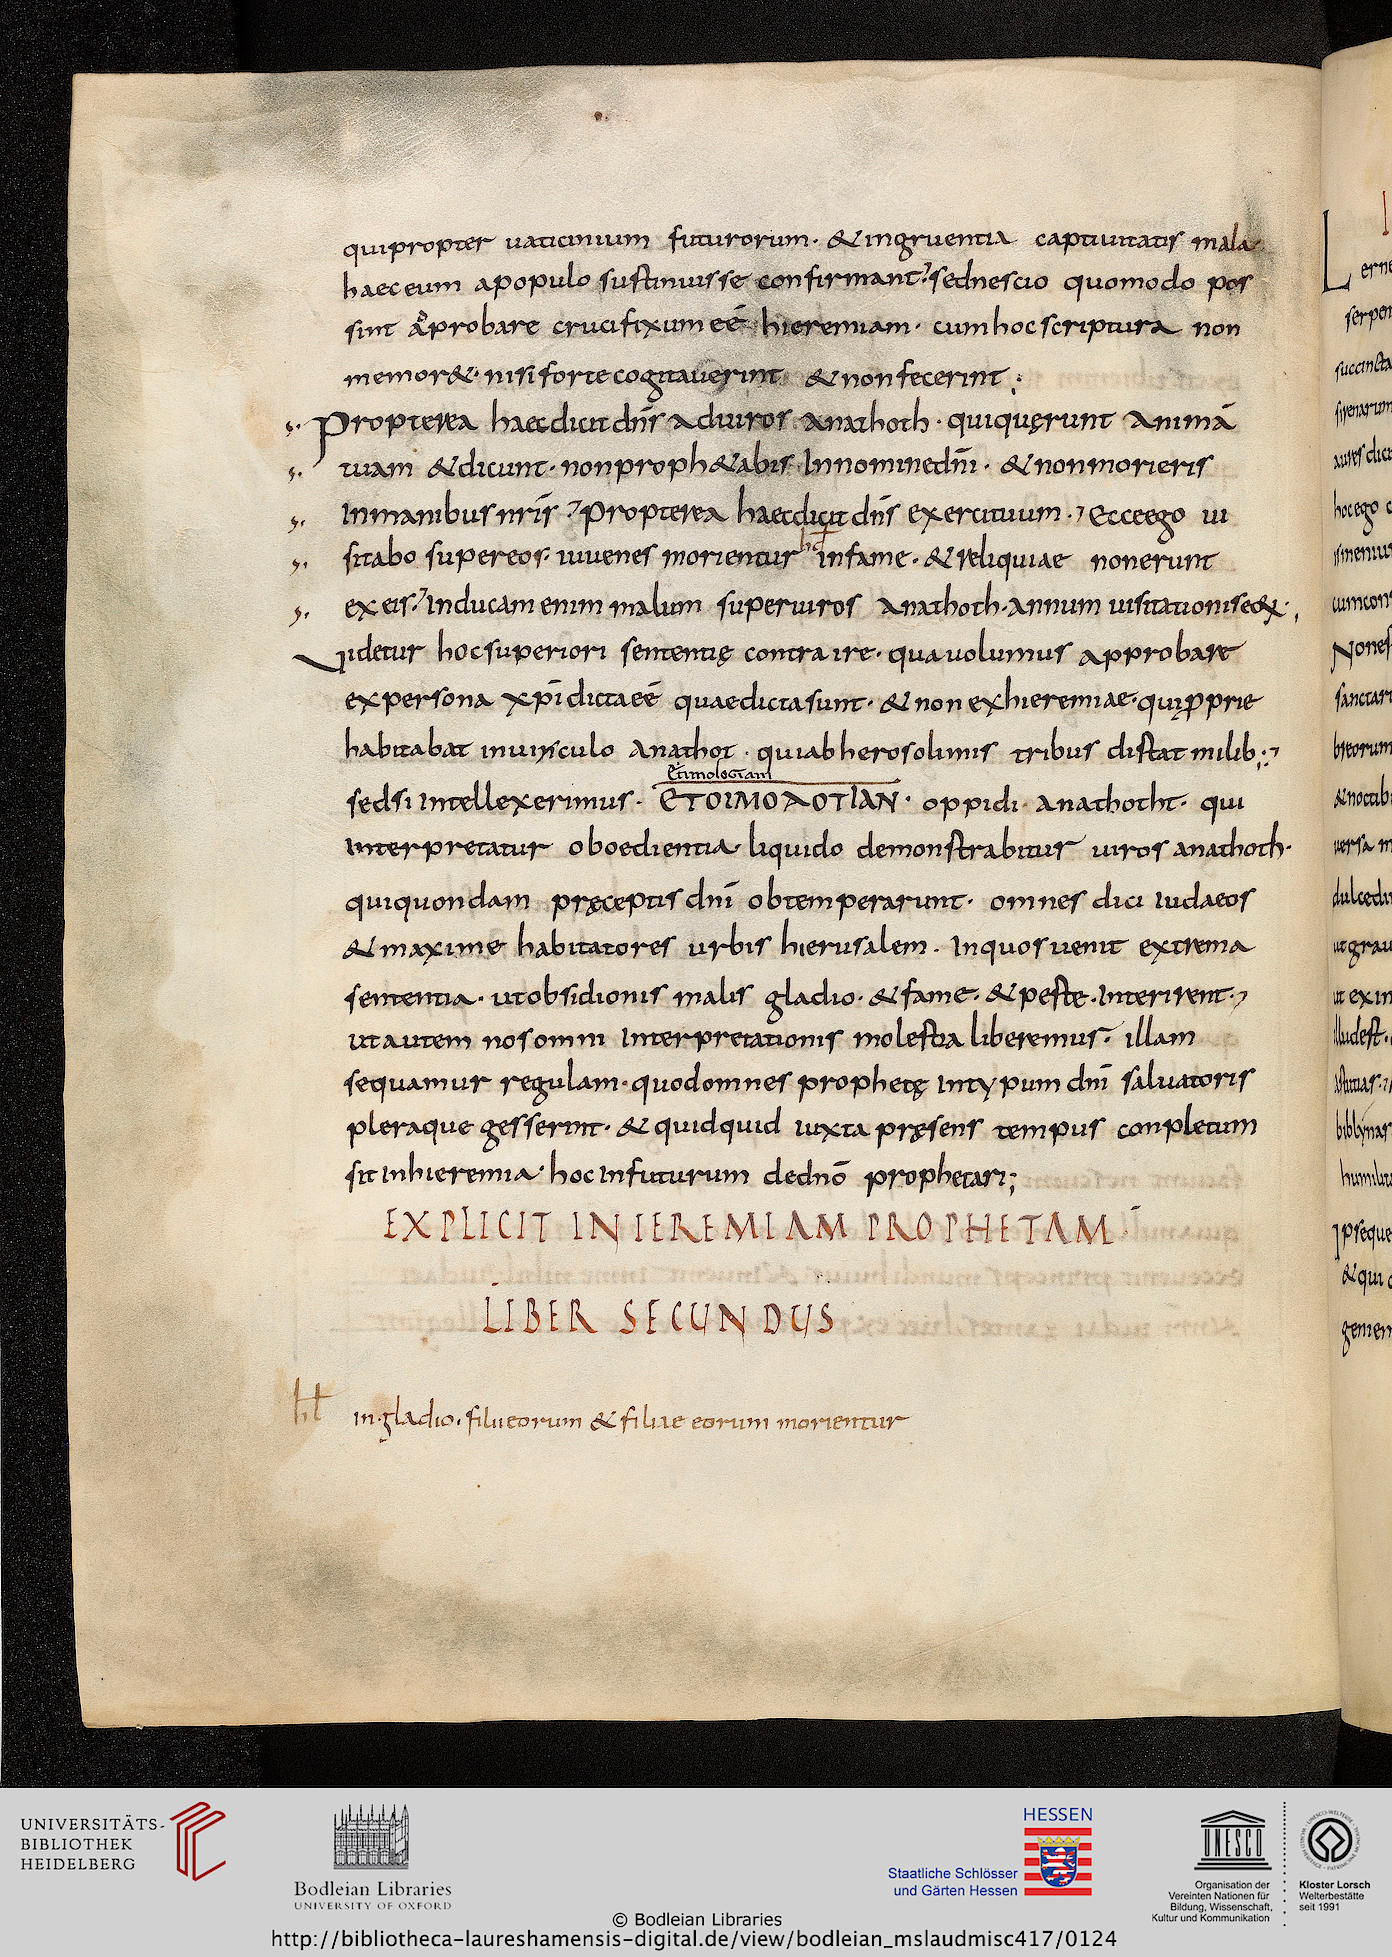 quipropter uaticinium futurorum· &ingruentia captiuitatis mala·
haeceum apopulo sustinuisse confirmant· sednescio quomodo pos
sint aprobare crucifixumeē hieremiam· cumhocscriptura non
memor&· nisifortecogitauerint &nonfecerint;
Propterea haecdicitdn̄s aduiros anathoth· quiquęrunt animā
tuam &dicunt· nonproph&abis Innominedn̄i· &nonmorieris
Inmanibus nr̄is Propterea haecdicit dn̄s exercituum· Ecceego ui
sitabo supereos· iuuenes morientur hđ infame· &reliquiae nonerunt
exeis· Inducam enim malum superuiros anathoth· annum uisitationisę&;
Videtur hocsuperiori sententię contra ire· quauolumus approbare
expersona xp̄i dictaeē quaedictasunt· &non exhieremiae· quip̱prie
habitabat inuinculo anathot· quiabherosolimis tribus distat milib·;
etimologiam
sedsi Intellexerimus· ЄTOIMOΛOTIAN· oppidi· anathotht· qui
Interpretatur oboedientia· liquido demonstrabitur uiros anathoth·
quiquondam pręceptis dn̄i obtemperarunt· omnes dici iudaeos
&maxime habitatores urbis hierusalem· Inquos uenit extrema
sententia· utobsidionis malis gladio· &fame· &peste· Interirent·
utautem nosomni Interpretationis molestia liberemus· illam
sequamur regulam· quodomnes prophetę Intypum dn̄i saluatoris
pleraque gesserint· &quidquid iuxta pręsens tempus conpletum
sit inhieremia· hoc infuturum dednō prophetari;
EXPLICIT IN IEREMIAM PROPHETAM
LIBER SECUNDUS
hł in·gladio· filiieorum &filiae eorum morientur
UNIVERSITÄTS-
BIBLIOTHEK
HEIDELBERG
Bodleian Libraries
UNIVERSITY OF OXFORD
HESSEN
Staatliche Schlösser
und Gärten Hessen
UNESCO
Organisation der
Vereinten Nationen für
Bildung, Wissenschaft,
Kultur und Kommunikation
Kloster Lorsch
Welterbestätte
seit 1991
© Bodleian Libraries
http://bibliotheca-laureshamensis-digital.de/view/bodleian_mslaudmisc417/0124